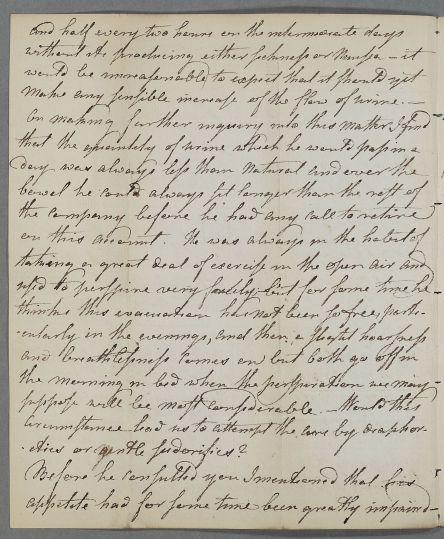 and half every two hours on the intermediate days
without its producing either sickness or Nausea - it
would be unreasonable to expect that it should yet
make any sensible increase of the flow of urine. -
On making further inquiry into this matter I find
that the quantity of urine which he would pass in a
day was always less than natural and over the
bowel he could always sit longer than the rest of
the company before he had any call to retire
on this account. He was always in the habit of
taking a great deal of exercise in the open air and
used to perspire very freely but for some time he
thinks this evacuation has not been so free, parti-
-cularly in the evenings, and then a slight hoarseness
and breathlessness comes on but both go off in
the morning in bed when the perspiration we may
suppose will be most considerable. - Would this
circumstance lead us to attempt the cure by diaphor-
-etics or gentle sudorifics?
Before he consulted you I mentioned that his
appetite had for some time been greatly impaired